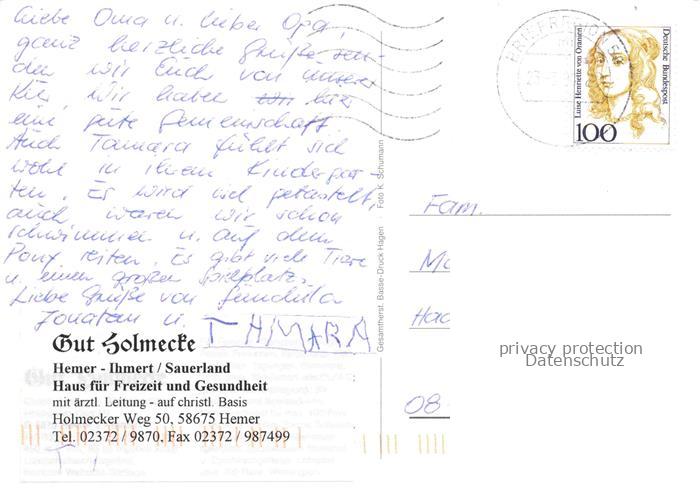 Liebe Oma u. lieber Opa,
ganz herzliche Grüße sen-
den wir Euch von unserer
Kur, wir haben hier
eine gute Gemeinschaft.
Auch Tamara fühlt sich
wohl in ihrem Kindergar-
ten. Es wird viel gebastelt,
auch waren wir schon
schwimmen u. auf dem
Pony reiten. Es gibt viele Tiere
u. einen großen Spielplatz.
Liebe Grüße von
Jonatan u. TAMARA
Gut Holmecke
Hemer - Ihmert / Sauerland
Haus für Freizeit und Gesundheit
mit ärztl. Leitung - auf christl. Basis
Holmecker Weg 50, 58675 Hemer
Tel. 02372 / 9870, Fax 02372 / 987499
Gesamtherst. Basse-Druck Hagen · Foto K. Schumann
Luise Henriette von Oranien
Deutsche Bundespost
100
Fam.
08
privacy protection
Datenschutz